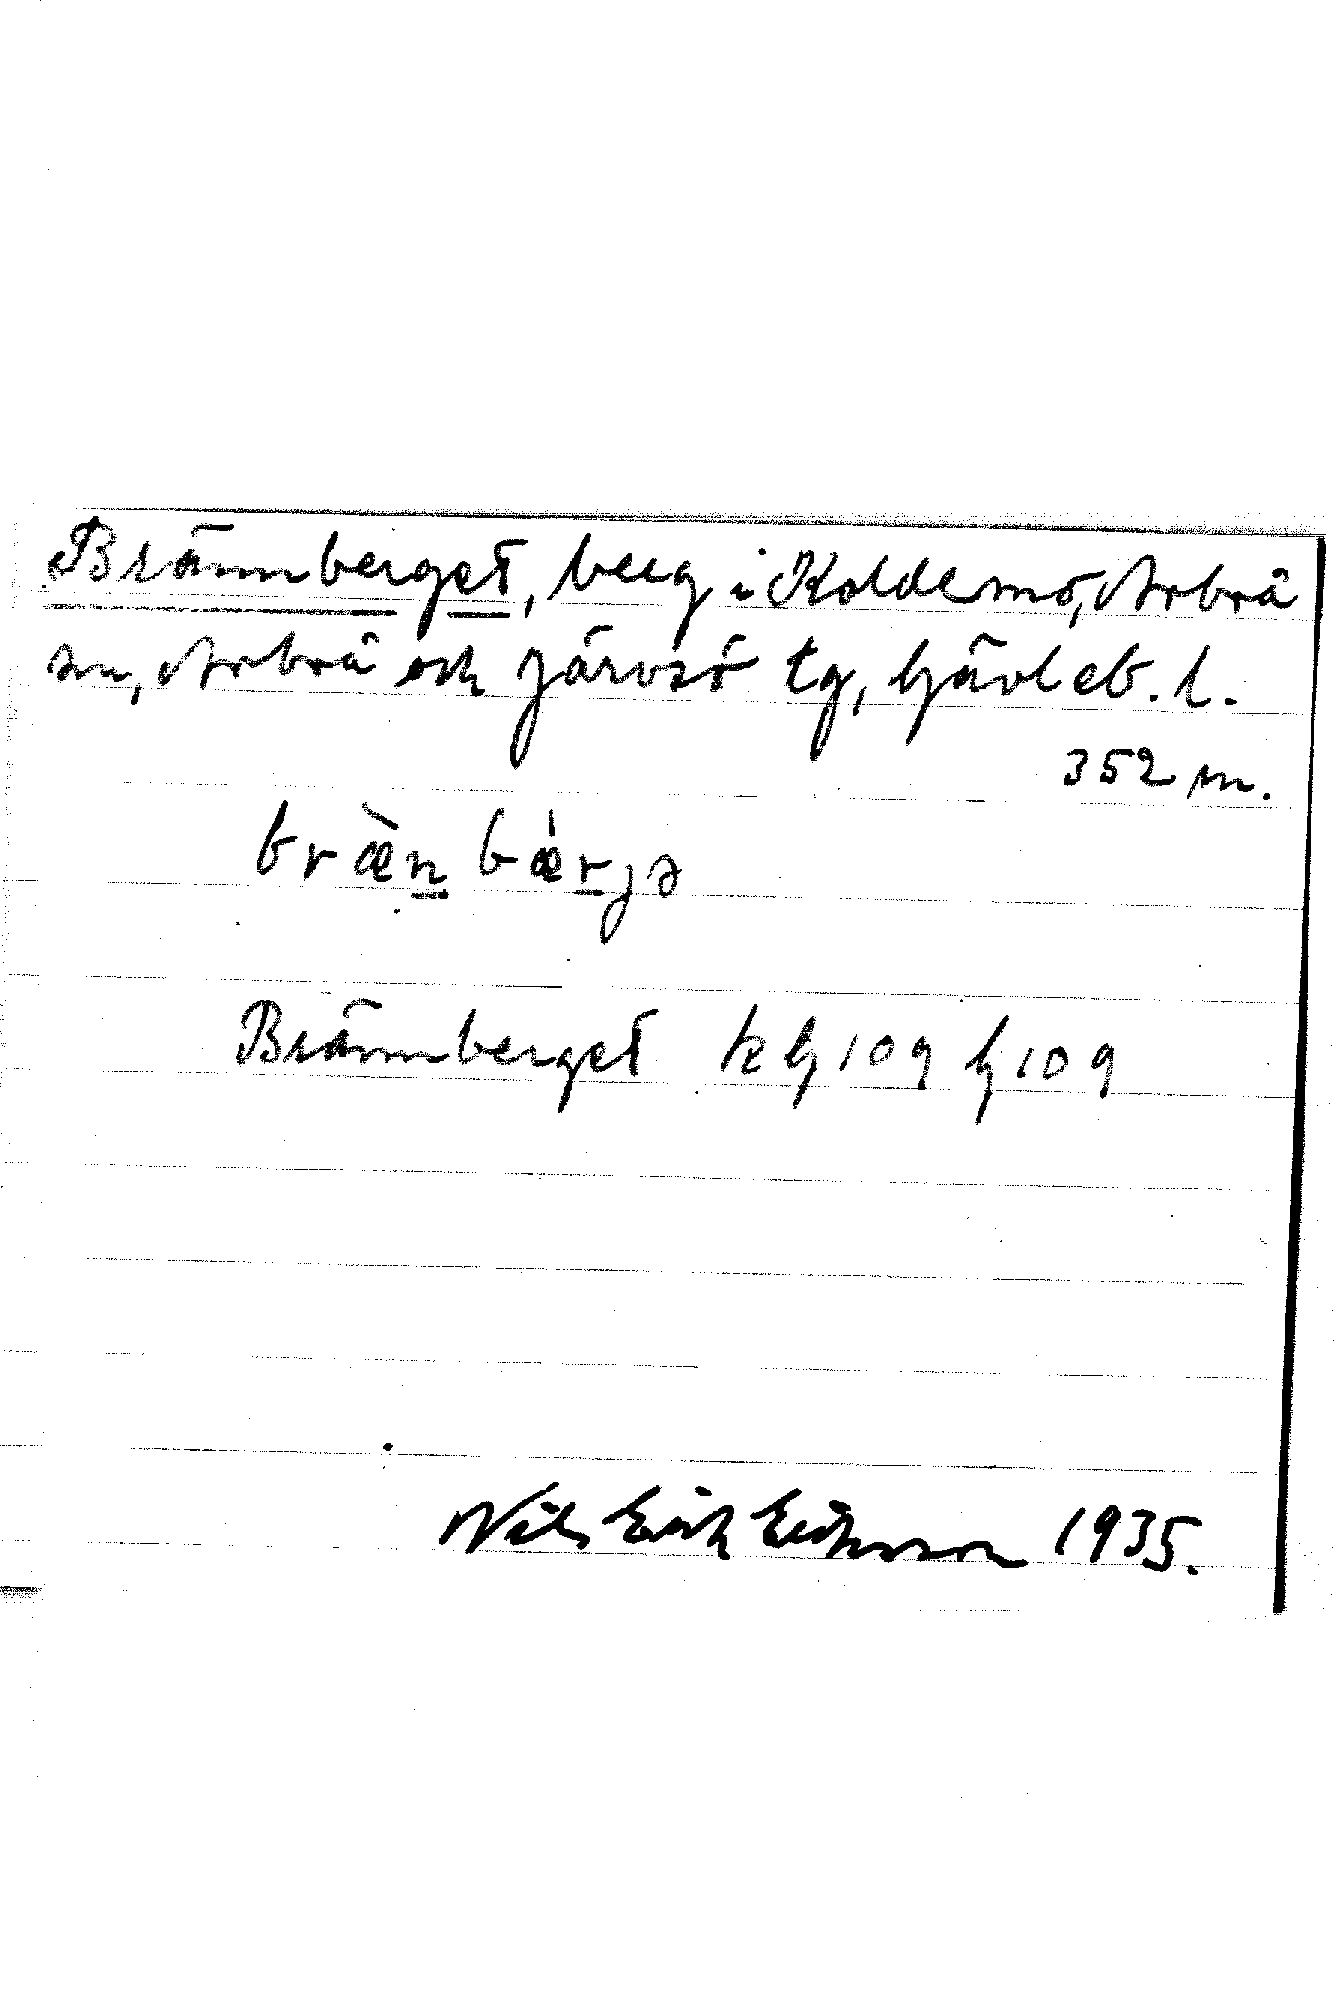 Brännberget, berg i Koldemo, Arbrå
sn, Arbrå och Järvsö tg, Gävleb. l.
352 m.
bræ̀n bæ̀rjə
Brännberget k G 109 G 109
Nils Erik Eriksson 1935.